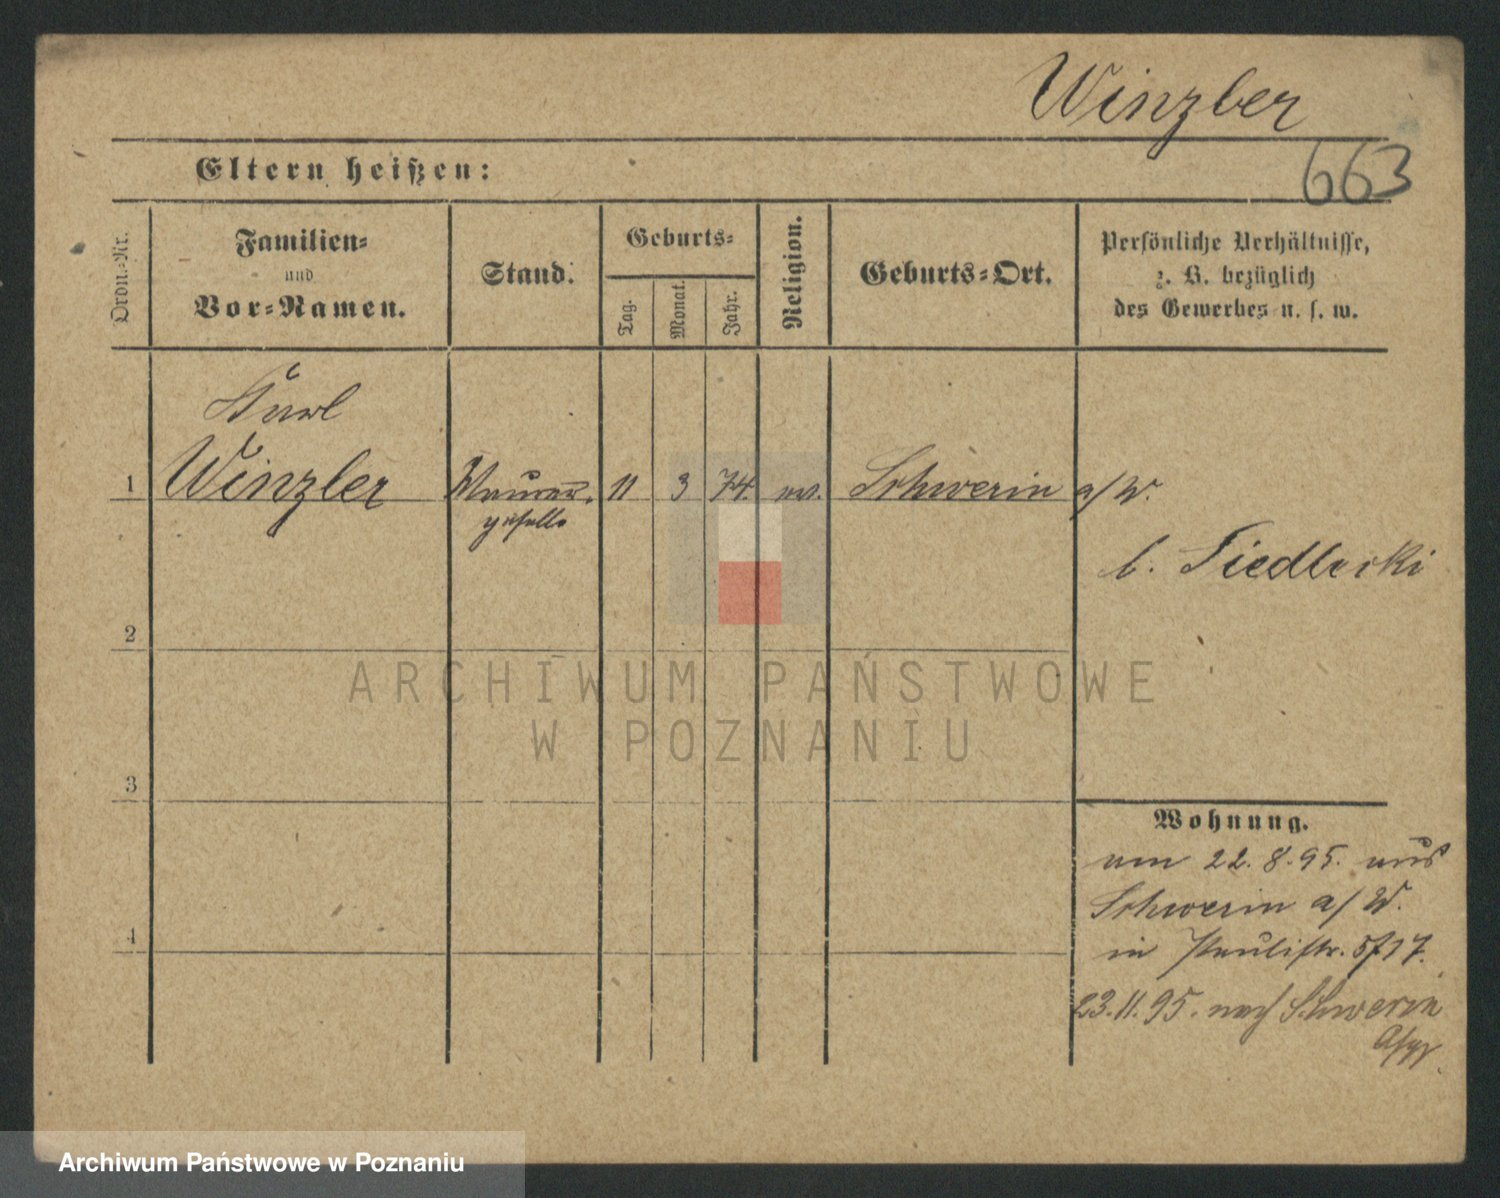 Winzler
663
Eltern heißen:
Ordn.-Nr.
Familien-
und
Vor-Namen.
Stand.
Geburts-
Tag.
Monat.
Jahr.
Religion.
Geburts-Ort.
Persönliche Verhältnisse,
z. B. bezüglich
des Gewerbes u. s. w.
Karl
1 Winzler Maurer- 11 3 74. ev. Schwerin a/W.
geselle
b. Siedlecki
2
3
4
Wohnung.
am 22.8.95. aus
Schwerin a/W.
in Paulistr. 5/17.
23.11.95. nach Schwerin
ARCHIWUM PAŃSTWOWE
W POZNANIU
Archiwum Państwowe w Poznaniu